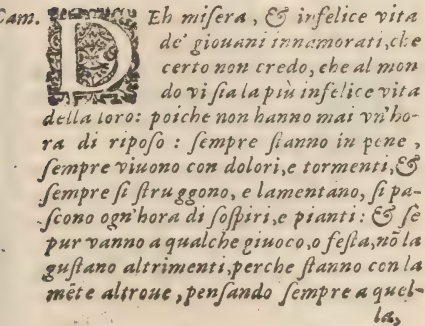 Cam. DEh miſera, & infelice vita
de' giouani innamorati, che
certo non credo, che al mon
do vi ſia la più infelice vita
della loro: poiche non hanno mai vn'ho-
ra di ripoſo: ſempre ſtanno in pene,
ſempre viuono con dolori, e tormenti, &
ſempre ſi ſtruggono, e lamentano, ſi pa-
ſcono ogn'hora di ſoſpiri, e pianti: & ſe
pur vanno a qualche giuoco, o feſta, nō la
guſtano altrimenti, perche ſtanno con la
mēte altroue, penſando ſempre a quel-
la,